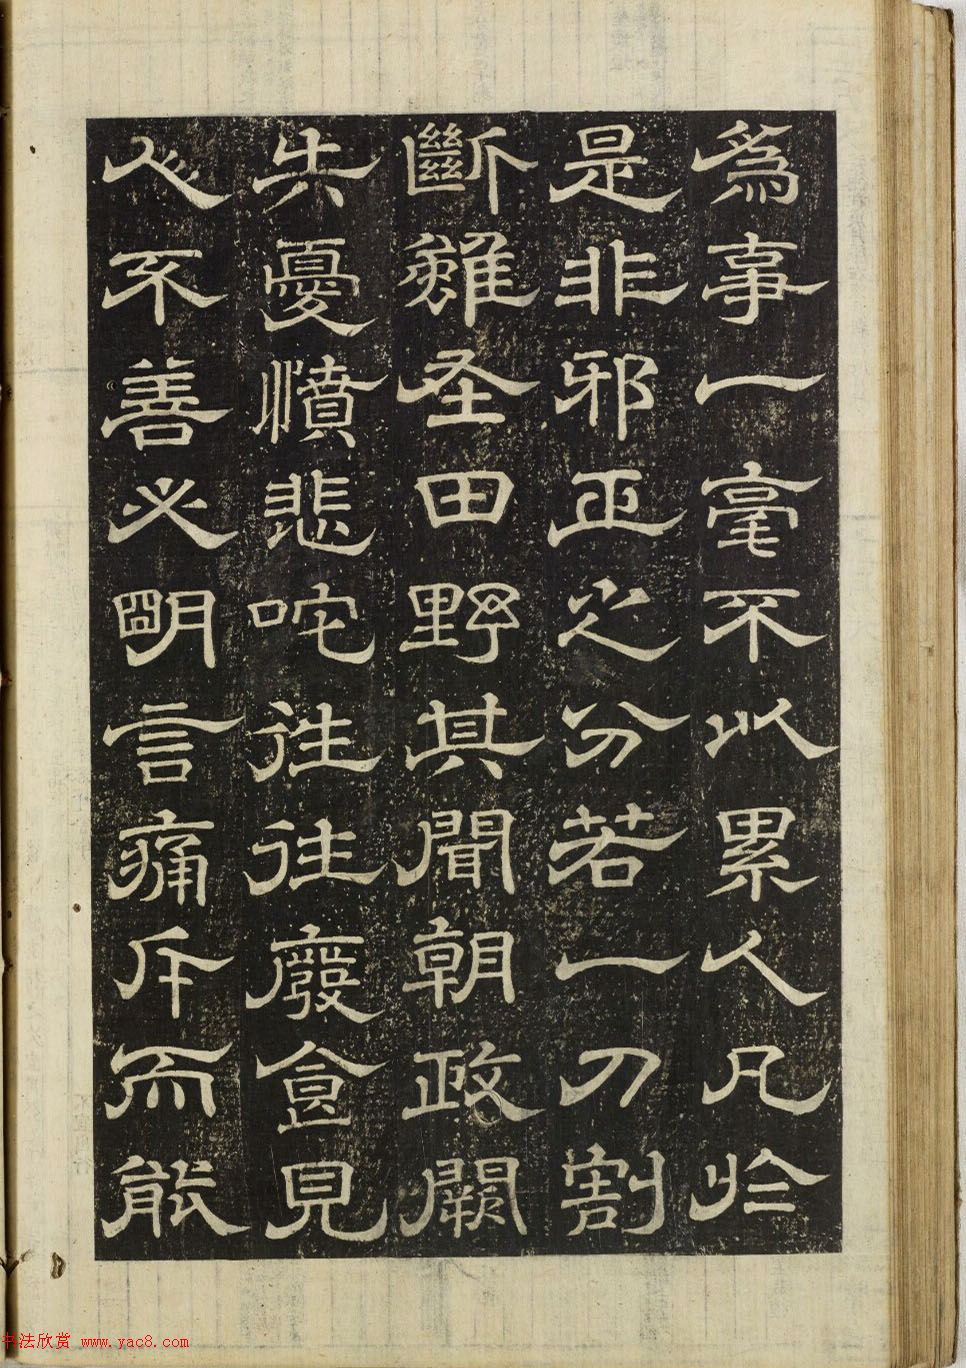 為事一毫不以累人凡於
是非邪正之分若一刀割
斷雖在田野其聞朝政闕
失憂憤悲咤往往廢食見
人不善必明言痛斥而能
书法欣赏 www.yac8.com